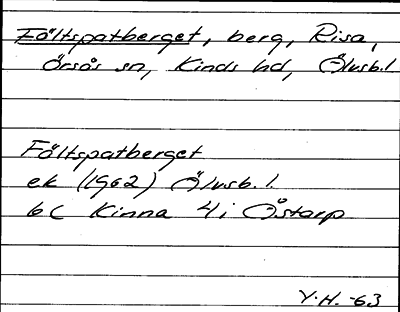 Fältspatberget, berg, Risa,
Örsås sn, Kinds hd, Älvsb.l.
Fältspatberget
ek (1962) Älvsb.l.
6C Kinna 4i Åstarp
Y.H. -63